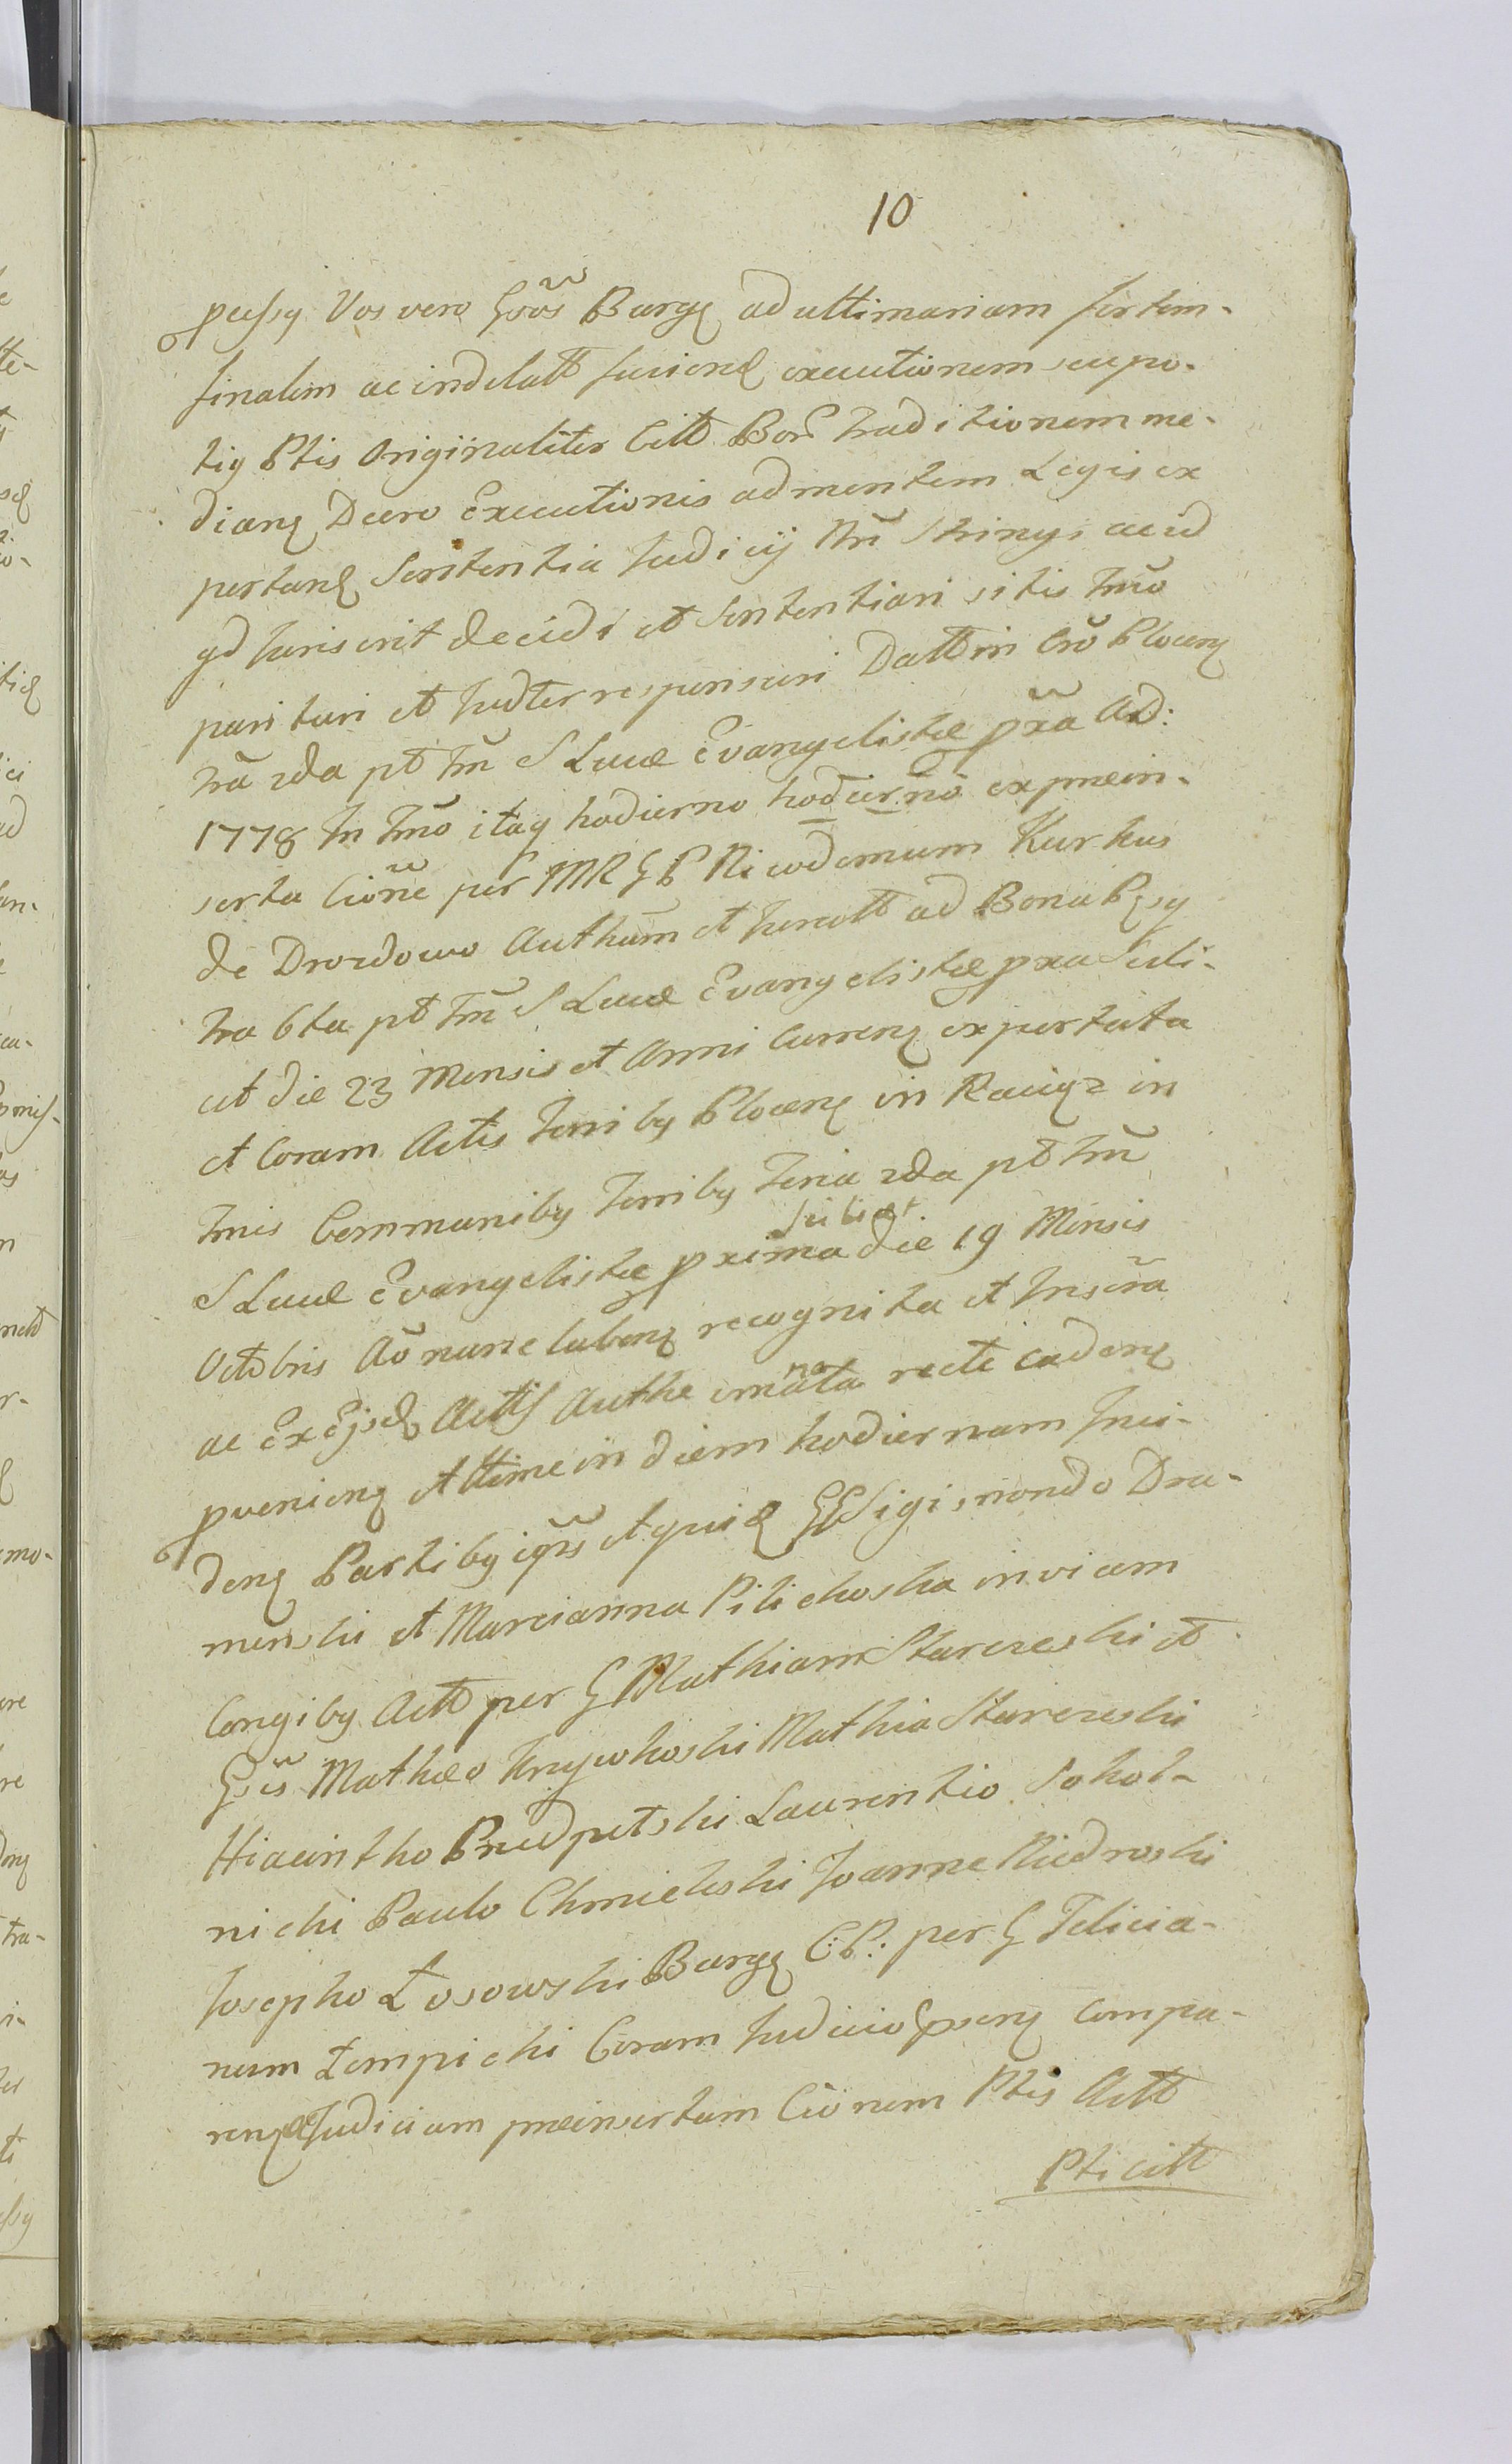 10
pcessq Vos vero Gnõs Burgę ad ultimariam fortem-
finalem ac indelatt faciend executionem seu po-
tiq Ptis Originaliter Citt Bon traditionem me-
diang Decro Executionis ad mentem Legis ex
pertand Sententia Judicij Nrĩ Strinyi ac id
qd Juris erit decidi et Sententiari sitis Tmo
parituri et Judter responsuri Datt in Crõ Ploceng
Fra 2da pt Tm S Lucæ Evangelistæ pxã AD:
1778 In Tmo itaq hodierno hodierno ex præin-
serta Ciõne per MR G P Nicodemum Kurkus
de Drozdowo Authum et Juratt ad Bona Pssq
Fra 6ta pt Tm S Lucæ Evangelistæ pxa Scili-
cet die 23 Mensis et Anni Curreng exportata
et Coram Actis Terribq Ploceng in Raciąz in
Tmis Communibq Terribq Feria 2da pt Tm
Scilicet
S Lucæ Evangelistæ pxima die 19 Mensis
Octobris Aõ nunc labeng recognita et Insẽra
ac Ex Ejsd Acttis Authe emanata recte cadeng
pvenieng et ttime in diem hodiernam Inci-
deng Partibq iprs et quid GG Sigismondo Dra-
minski et Marcianna Pilichoska invicem
Congibq Actt per G Mathiam Starczeski et
Gsis Mathæo Krzywkoski Mathia Starczeski
Hiacintho Prudpetski Laurentio Sokol-
nicki Paulo Chmieleski Joanne Niedroski
Josepho Łosowski Burgę C:P: per G Felicia-
num Łempicki Coram Judicio pseng compa-
reng Judicium præinsertam Ciõnem Ptis Actt
Pti citt